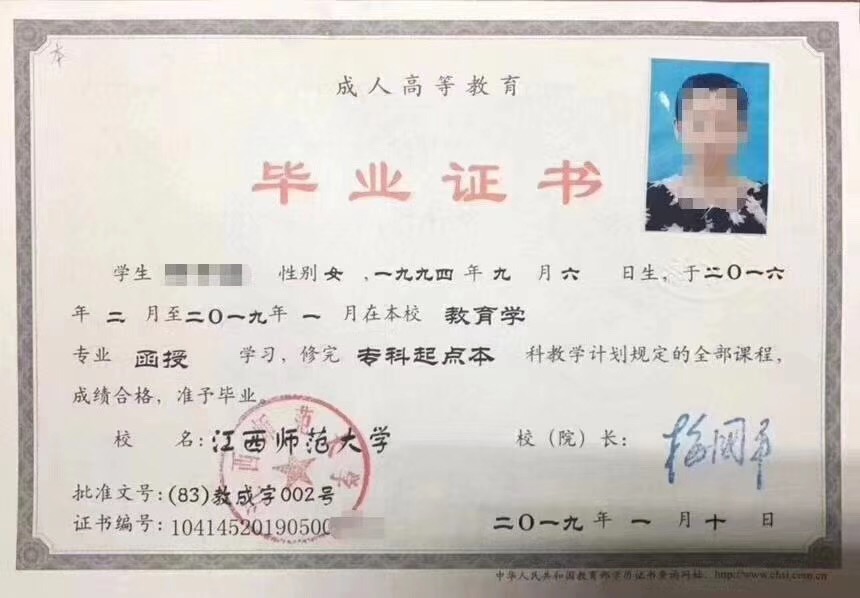 本
成人高等教育
毕业证书
学生 性别 女 ，一九九四 年 九 月 六 日生，于二〇一六
年 二 月至二〇一九年 一 月在本校 教育学
专业 函授 学习，修完 专科起点本 科教学计划规定的全部课程，
成绩合格，准予毕业。
校 名：江西师范大学 校（院）长：
批准文号：(83)教成字002号
证书编号：10414520190500
二〇一九 年 一 月 十 日
中华人民共和国教育部学历证书查询网址：http://www.chsi.com.cn